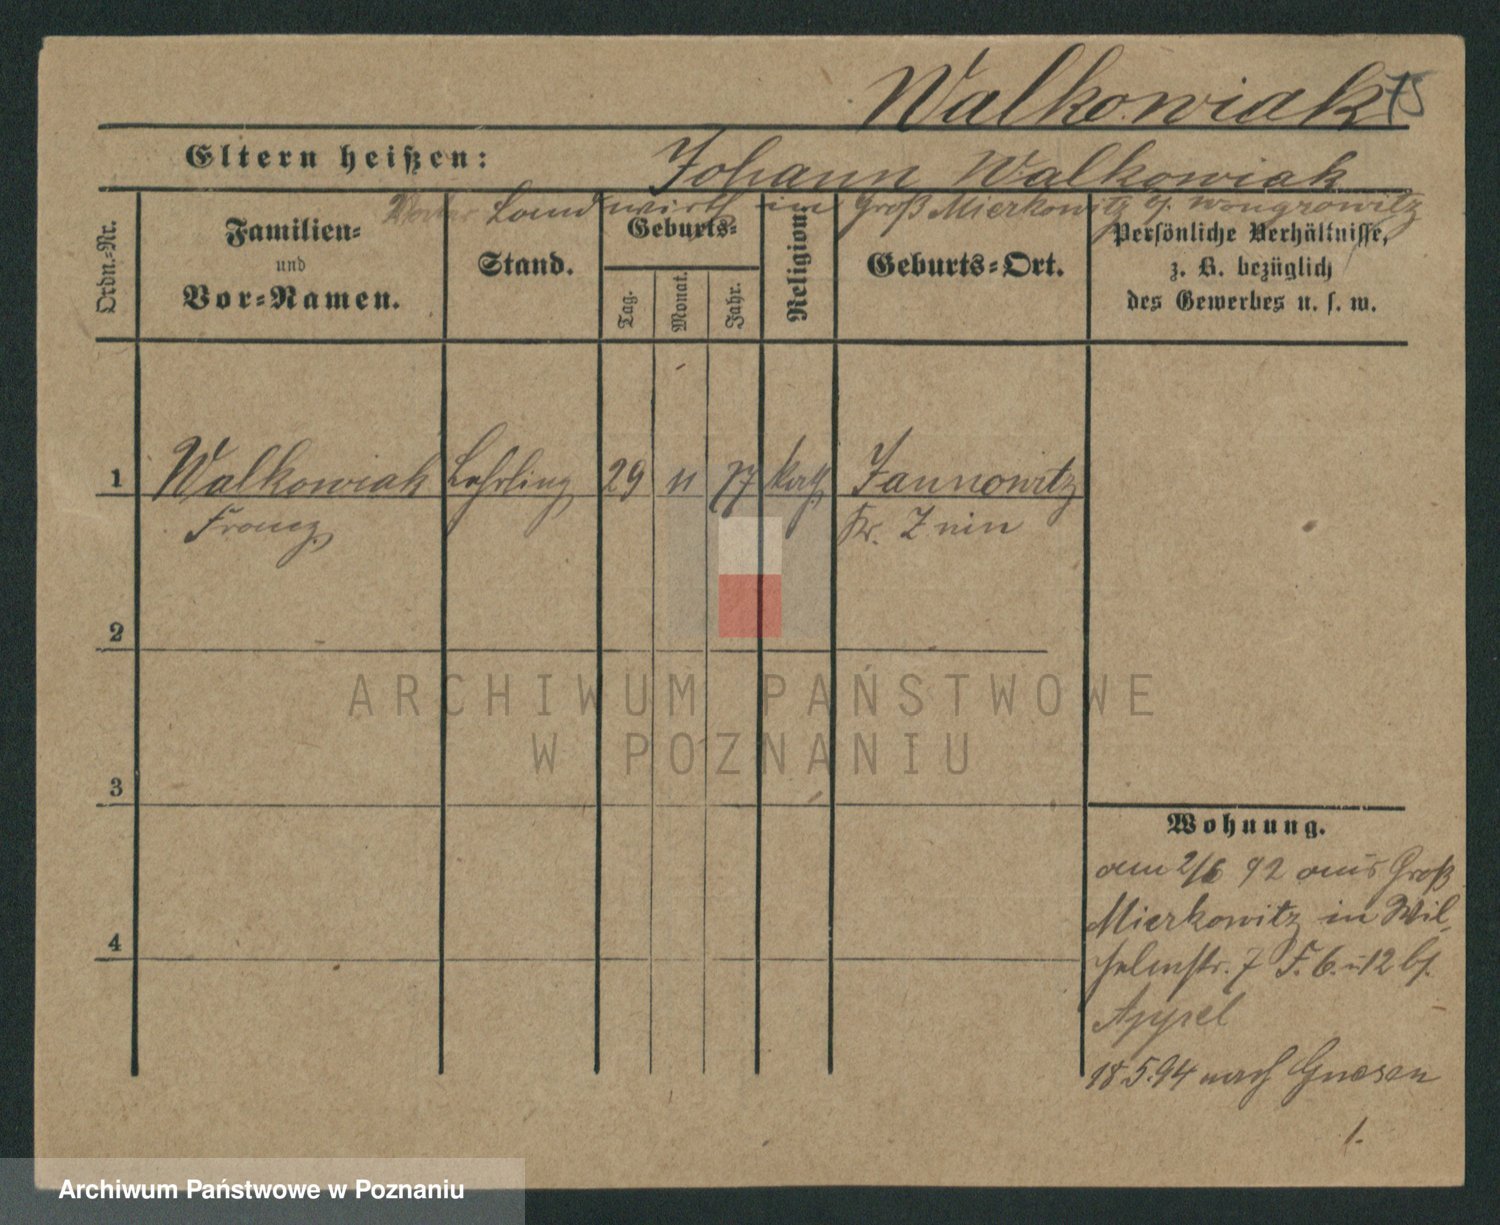 Walkowiak
75
Eltern heißen: Johann Walkowiak
Landwirth in Groß Mierkowitz Wongrowitz
Ordn.-Nr.
Familien-
und
Vor-Namen.
Stand.
Geburts-
Tag.
Monat.
Jahr.
Religion.
Geburts-Ort.
Persönliche Verhältnisse,
z. B. bezüglich
des Gewerbes u. s. w.
1 Walkowiak Lehrling 29 11 77 kath Jannowitz
Franz Kr. Znin
2
ARCHIWUM PAŃSTWOWE
W POZNANIU
3
Wohnung.
am 2/6 92 aus Groß
Mierkowitz in Wil-
helmstr. 7 F. 6. 12 bei
Appel
4
18.5.94 nach Gnesen
1.
Archiwum Państwowe w Poznaniu